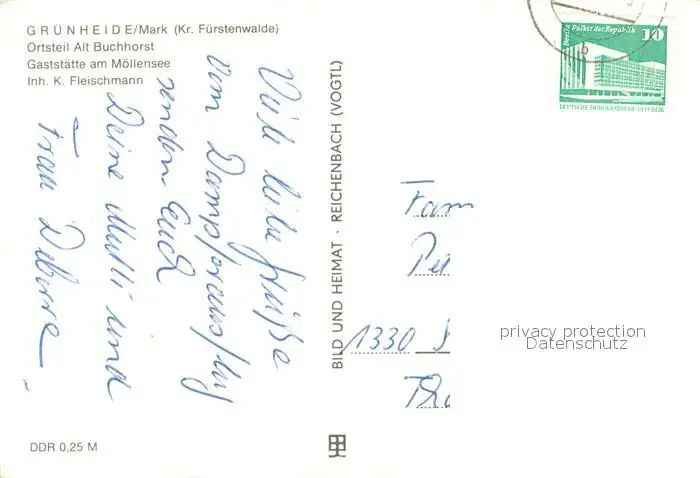 GRÜNHEIDE/Mark (Kr. Fürstenwalde)
Ortsteil Alt Buchhorst
Gaststätte am Möllensee
Inh. K. Fleischmann
Viele liebe Grüße
vom Dampferausflug
senden Euch
Deine Mutti und
Frau
DDR 0,25 M
BILD UND HEIMAT · REICHENBACH (VOGTL)
Berlin Palast der Republik
10
DEUTSCHE DEMOKRATISCHE REPUBLIK
b
Fam
Pe
1330
privacy protection
Datenschutz